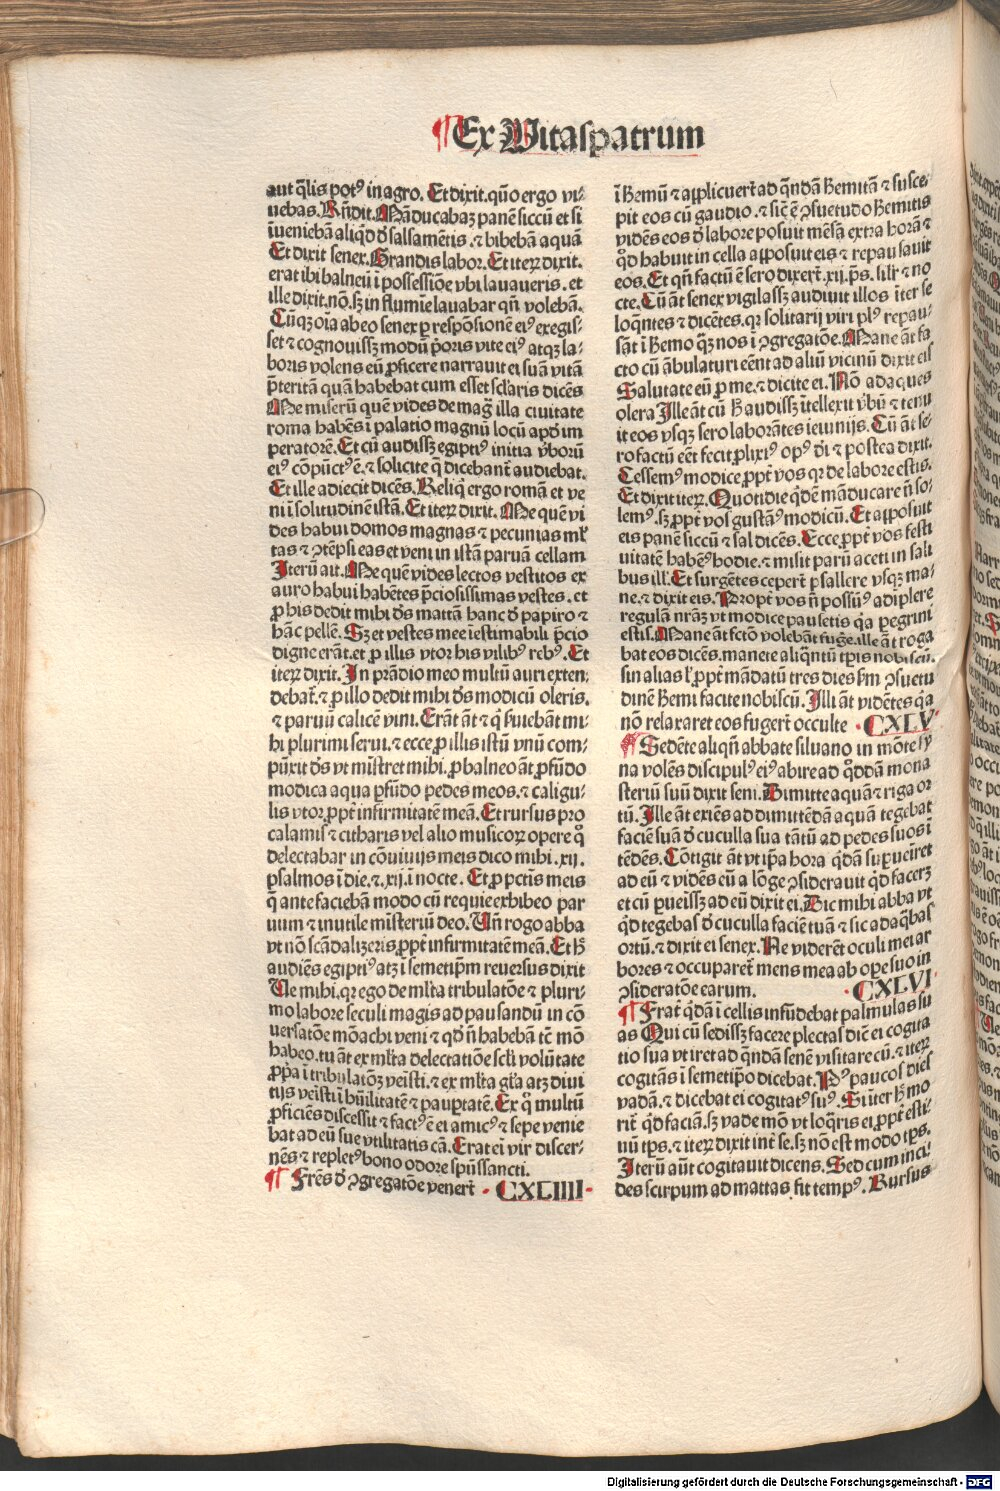 Ex Vitaspatrum
aut q̃lis potꝰ in agro. Et dixit. quõ ergo vi⸗
uebas. Rñdit. Mãducabaȝ panẽ siccũ et si
ĩueniebã aliqd̃ d̃ salsamẽtis. ⁊ bibebã aquã
Et dixit senex. Grandis labor. Et iteꝝ dixit.
erat ibi balneũ ĩ possessiõe vbi lauaueris. et
ille dixit. nõ. sȝ in flumĩe lauabar qñ volebã.
Cũqȝ oĩa ab eo senex ꝑ respõsionẽ eiꝰ exegis⸗
set ⁊ cognouissȝ modũ p̃oris vite eiꝰ atqȝ la⸗
boris volens eũ ꝓficere narrauit ei suã vitã
p̃teritã quã habebat cum esset sclaris dicẽs
Me miserũ quẽ vides de mag̃ illa ciuitate
roma habẽs ĩ palatio magnũ locũ apd̃ im
peratorẽ. Et cũ audissȝ egiptiꝰ initia v̓borũ
eiꝰ cõpũctꝰ ẽ. ⁊ solicite q̃ dicebant̃ audiebat.
Et ille adiecit dicẽs. Reliq̃ ergo romã et ve
ni ĩ solitudinẽ istã. Et iteꝝ dixit. Me quẽ vi
des habui domos magnas ⁊ pecunias ml̃
tas ⁊ ꝯtẽpsi eas et veni in istã paruã cellam
Iterũ ait. Me quẽ vides lectos vestitos ex
auro habui habẽtes p̃ciosissimas vestes. et
ꝓ his dedit mihi dñs mattã hanc d̃ papiro ⁊
hãc pellẽ. Sȝ et vestes mee ĩestimabili p̃cio
digne erãt. et ꝓ illis vtor his vilibꝰ rebꝰ. Et
iteꝝ dixit. In prãdio meo multũ auri exten⸗
debat̃. ⁊ ꝓ illo dedit mihi dñs modicũ oleris.
⁊ paruũ calicẽ vini. Erãt ãt ⁊ q̃ ẜuiebãt mi⸗
hi plurimi serui. ⁊ ecce ꝓ illis istũ vnũ com⸗
pũxit dñs vt mĩstret mihi. ꝓ balneo ãt ꝓfũdo
modica aqua ꝑfũdo pedes meos. ⁊ caligu⸗
lis vtor ꝓpt̃ infirmitatẽ meã. Et rursus pro
calamis ⁊ citharis vel alio musicoꝝ opere q̊
delectabar in cõuiuijs meis dico mihi. xij.
psalmos ĩ die. ⁊. xij. ĩ nocte. Et ꝓ pctĩs meis
q̃ ante faciebã modo cũ requie exhibeo par
uum ⁊ inutile mĩsteriũ deo. Uñ rogo abba
vt nõ scãdalizeris ꝓpt̃ infirmitatẽ meã. Et h̃
audiẽs egiptiꝰ atqȝ ĩ semetip̃m reuersus dixit
Ue mihi. qꝛ ego de ml̃ta tribulatõe ⁊ pluri⸗
mo labore seculi magis ad pausandũ in cõ
uersatõe mõachi veni ⁊ qd̃ ñ habebã tẽ mõ
habeo. tu ãt ex ml̃ta delectatiõe scl̃i volũtate
ꝓp̃a ĩ tribulatõȝ veĩsti. ⁊ ex ml̃ta gl̃a atqȝ diui
tijs veĩsti ĩ hũilitatẽ ⁊ pauꝑtatẽ. Ex q̊ multũ
ꝓficiẽs discessit ⁊ factꝰ ẽ ei amicꝰ ⁊ sepe venie
bat ad eũ sue vtilitatis cã. Erat ei vir discer⸗
nẽs ⁊ repletꝰ bono odore spũssancti.
¶ Frẽs d̃ ꝯgregatõe venert̃ · CXLIIII ·
ĩ h̓emũ ⁊ applicuert̃ ad q̃ndã h̓emitã ⁊ susce⸗
pit eos cũ gaudio. ⁊ sic̃ ẽ ꝯsuetudo h̓emitis
vidẽs eos d̃ labore posuit mẽsã extra horã ⁊
qd̃ habuit in cella apposuit eis ⁊ repausauit
eos. Et qñ factũ ẽ sero dixert̃. xij. p̃s. silr̃ ⁊ no
cte. Cũ ãt senex vigilassȝ audiuit illos ĩter se
loq̃ntes ⁊ dicẽtes. qꝛ solitarij viri plꝰ repau⸗
sãt ĩ h̓emo q̃ȝ nos ĩ ꝯgregatõe. Mane ãt fa
cto cũ ãbulaturi eẽnt ad aliũ vicinũ dixit eis
Salutate eũ ꝓ me. ⁊ dicite ei. Nõ adaques
olera Ille ãt cũ h̓ audissȝ ĩtellexit v̓bũ ⁊ tenu
it eos vsqȝ sero laborãtes ieiunijs. Cũ ãt se⸗
ro factũ eẽt fecit ꝓlixiꝰ opꝰ dĩ ⁊ postea dixit.
Cessemꝰ modice ꝓpt̃ vos qꝛ de labore estis.
Et dixit iteꝝ. Quotidie q̃dẽ mãducare ñ so⸗
lemꝰ. sȝ ꝓpt̃ vos gustãꝰ modicũ. Et apposuit
eis panẽ siccũ ⁊ sal dicẽs. Ecce ꝓpt̃ vos festi
uitatẽ habẽꝰ hodie. ⁊ misit parũ aceti in sali
bus ill̃. Et surgẽtes cepert̃ psallere vsqȝ ma⸗
ne. ⁊ dixit eis. Propt̃ vos ñ possũꝰ adiplere
regulã nr̃aȝ vt modice pausetis q̃a ꝑegrini
estis. Mane ãt fctõ volebãt fug̃e. ille ãt roga
bat eos dicẽs. manete aliq̃ntũ tp̃ris nobiscũ.
sin alias l̃ ꝓpt̃ mãdatũ tres dies ẜm ꝯsuetu
dinẽ h̓emi facite nobiscũ. Illi ãt vidẽtes q̃a
nõ relaxaret eos fugert̃ occulte · CXLV ·
¶ Sedẽte aliqñ abbate siluano in mõte sy
na volẽs discipulꝰ eiꝰ abire ad q̊ddã mona
steriũ suũ dixit seni. Dimitte aquã ⁊ riga or
tũ. Ille ãt exiẽs ad dimittẽdã aquã tegebat
faciẽ suã d̃ cuculla sua tãtũ ad pedes suos ĩ
tẽdẽs. Cõtigit ãt vt ip̃a hora q̃dã suꝑueĩret
ad eũ ⁊ vidẽs eũ a lõge ꝯsiderauit qd̃ facerȝ
et cũ ꝑueissȝ ad eũ dixit ei. Dic mihi abba vt
qd̃ tegebas d̃ cuculla faciẽ tuã ⁊ sic adaq̃bas
ortũ. ⁊ dixit ei senex. Ne viderẽt oculi mei ar
bores ⁊ occuparet̃ mens mea ab oꝑe suo in
ꝯsideratõe earum. · CXLVI ·
¶ Frat̃ q̃dã ĩ cellis infũdebat palmulas su
as Qui cũ sedissȝ facere plectas dic̃ ei cogita
tio sua vt iret ad q̃ndã senẽ visitare eũ. ⁊ iteꝝ
cogitãs ĩ semetip̃o dicebat. Pꝰ paucos dies
vadã. ⁊ dicebat ei cogitatꝰ suꝰ. Si ĩter h̓ mo
rit̃ qd̃ faciã. sȝ vade mõ vt loq̃ris ei ꝓpt̃ esti⸗
uũ tp̃s. ⁊ iteꝝ dixit int̃ se. sȝ nõ est modo tp̃s.
Iterũ aũt cogitauit dicens. Sed cum inci⸗
des scirpum ad mattas fit tempꝰ. Rursus
Digitalisierung gefördert durch die Deutsche Forschungsgemeinschaft - DFG